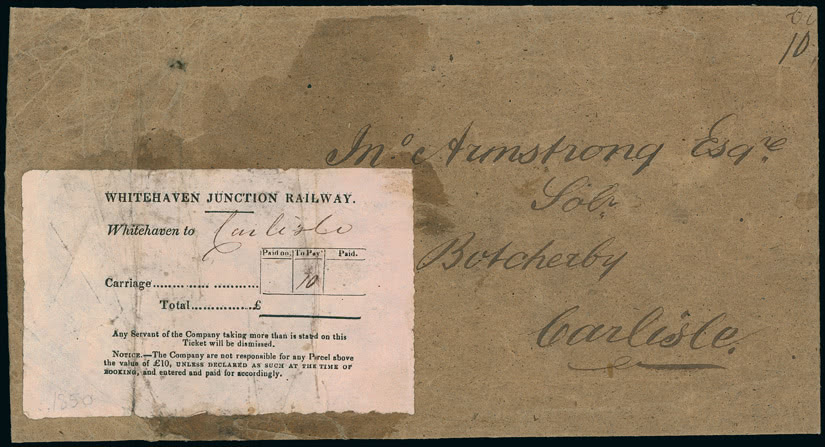 10
Jnº Armstrong Esqre.
Solr
Botcherby
Carlisle.
WHITEHAVEN JUNCTION RAILWAY.
Whitehaven to Carlisle
Paid no. To Pay Paid.
Carriage........................ 10
Total..............£
Any Servant of the Company taking more than is stated on this
Ticket will be dismissed.
NOTICE.—The Company are not responsible for any Parcel above
the value of £10, UNLESS DECLARED AS SUCH AT THE TIME OF
BOOKING, and entered and paid for accordingly.
1850